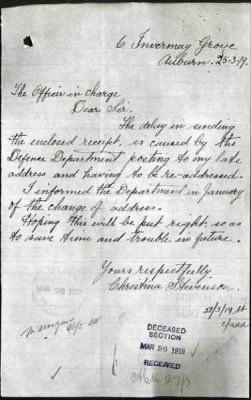 6 Invermay Grove
Auburn. 25.3.19.
The Officer in charge
Dear Sir.
The delay in sending
the enclosed receipt, is caused by the
Defence Department posting to my late
address and having to be re-addressed.
I informed the Department in January
of the change of address.
Hoping this will be put right, so as
to save time and trouble in future.
Yours respectfully
Christina Stevenson.
27/3/19
DECEASED
SECTION
MAR 26 1919
RECEIVED
27/3